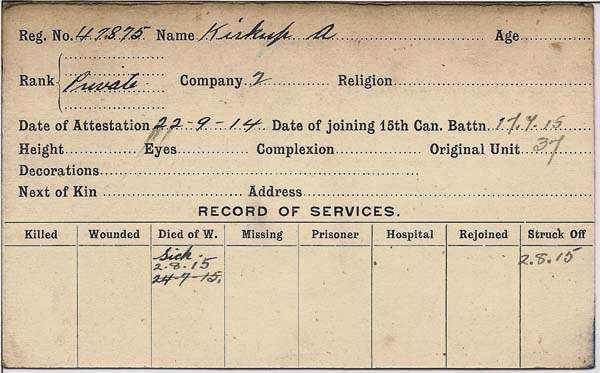 Reg. No. 47875 Name Kirkup A Age
Rank Private Company 2 Religion
Date of Attestation 22-9-14 Date of joining 15th Can. Battn. 17.7.15
Height Eyes Complexion Original Unit 37
Decorations
Next of Kin Address
RECORD OF SERVICES.
Killed Wounded Died of W. Missing Prisoner Hospital Rejoined Struck Off
Sick.
2.8.15 2.8.15
24-7-15.